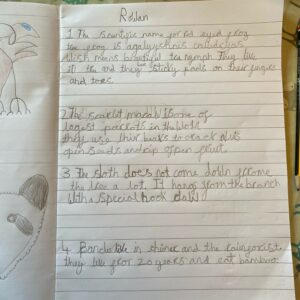 Rowan
1 The scientific name for red eyed frog
the frog is agalychnis callidryas
wich means beautiful tee nymph They live
in the and they sticky pads on their fingers
and toes.
2 The scarlet macaw is one of
lagest parrots in the World
they use thir beaks to crack nuts
open seeds and rip open fruit.
3 The sloth does not come down frome
the tree a lot. It hangs from the branch
With a special hook claw
4. Pandas live in and the rainforest
they live 20 years and eat bamboo.